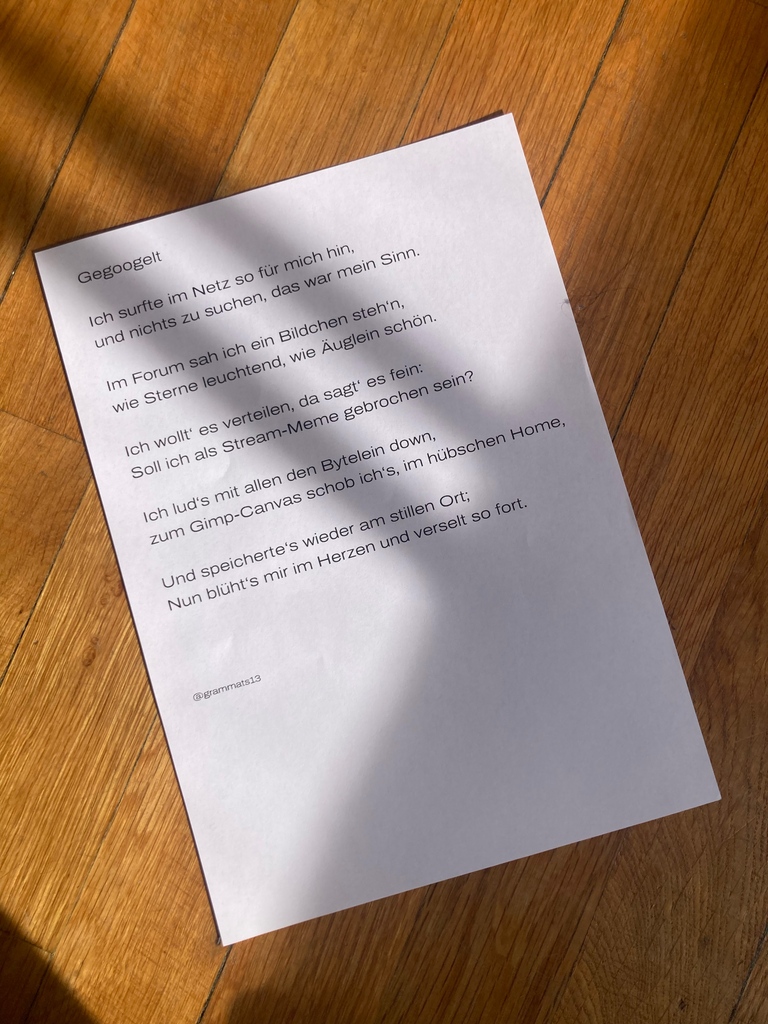 Gegoogelt
Ich surfte im Netz so für mich hin,
und nichts zu suchen, das war mein Sinn.
Im Forum sah ich ein Bildchen steh‘n,
wie Sterne leuchtend, wie Äuglein schön.
Ich wollt‘ es verteilen, da sagt‘ es fein:
Soll ich als Stream-Meme gebrochen sein?
Ich lud‘s mit allen den Bytelein down,
zum Gimp-Canvas schob ich‘s, im hübschen Home,
Und speicherte‘s wieder am stillen Ort;
Nun blüht‘s mir im Herzen und verselt so fort.
@grammats13